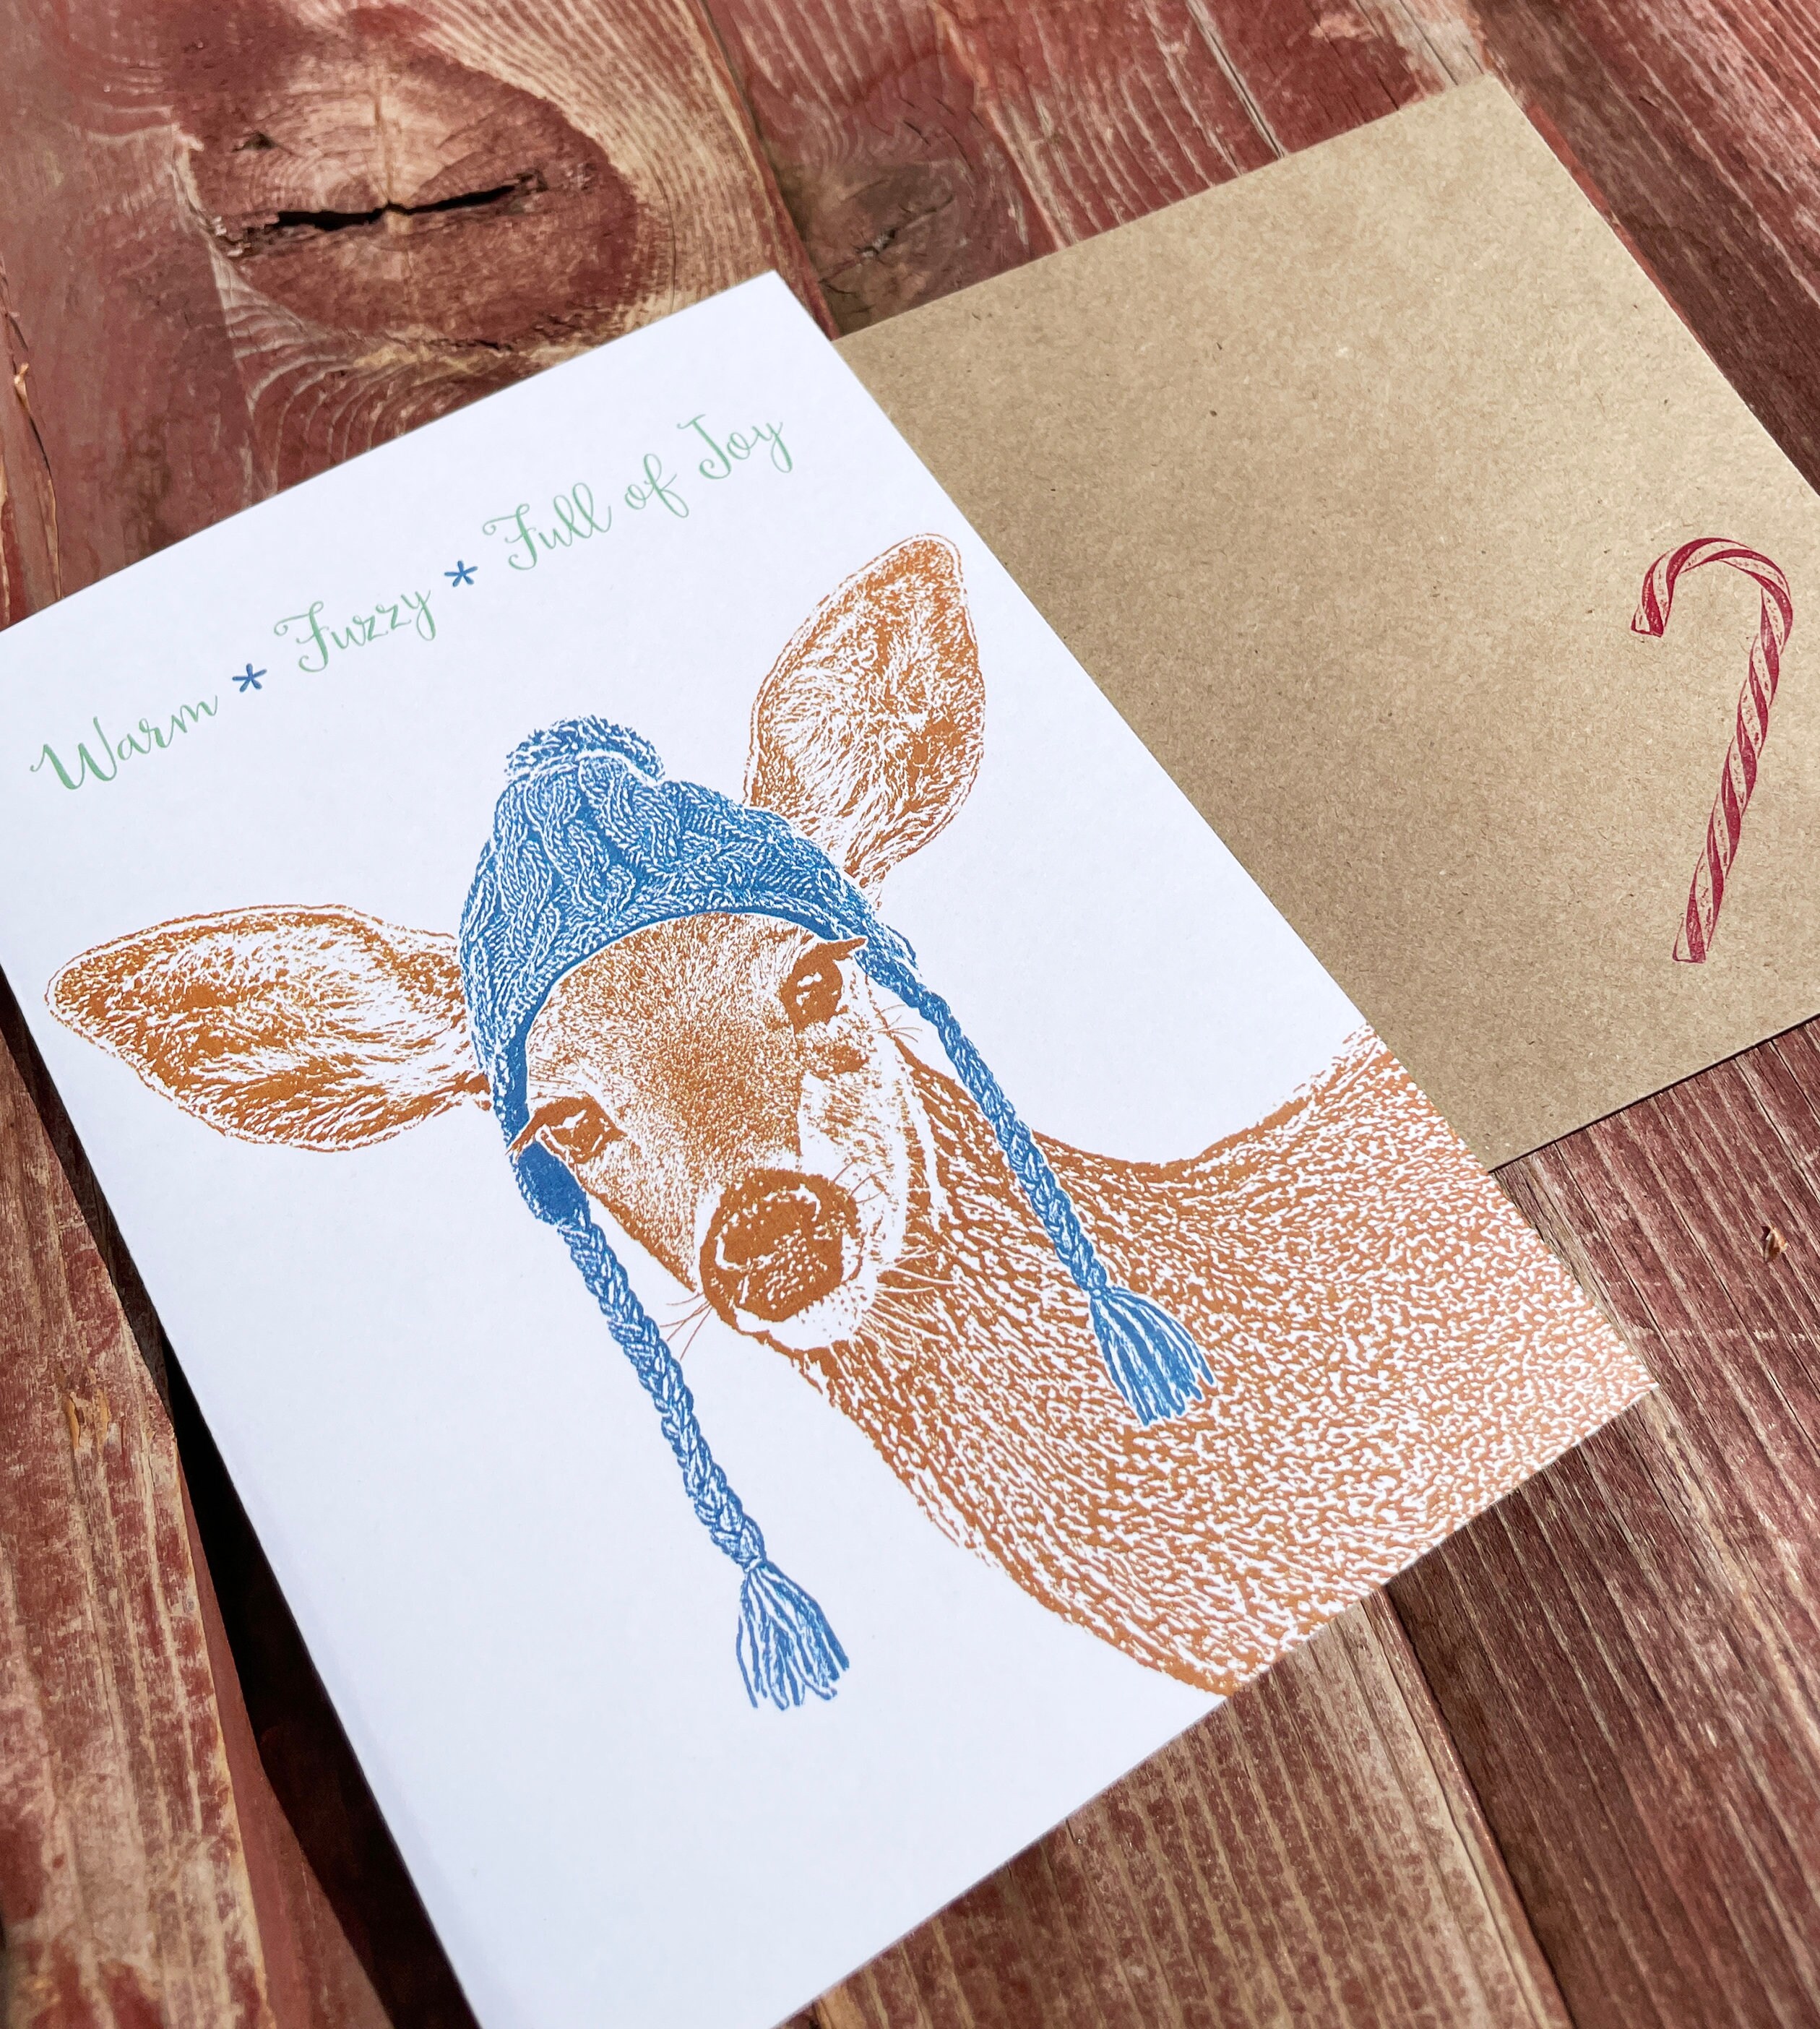 Warm * Fuzzy * Full of Joy